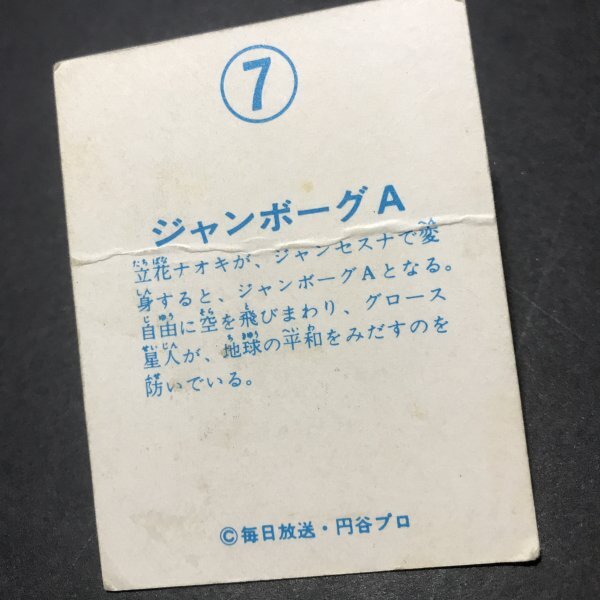 7
ジャンボーグA
立花ナオキが、ジャンセスナで変
身すると、ジャンボーグAとなる。
自由に空を飛びまわり、グロース
星人が、地球の平和をみだすのを
防いでいる。
©毎日放送・円谷プロ